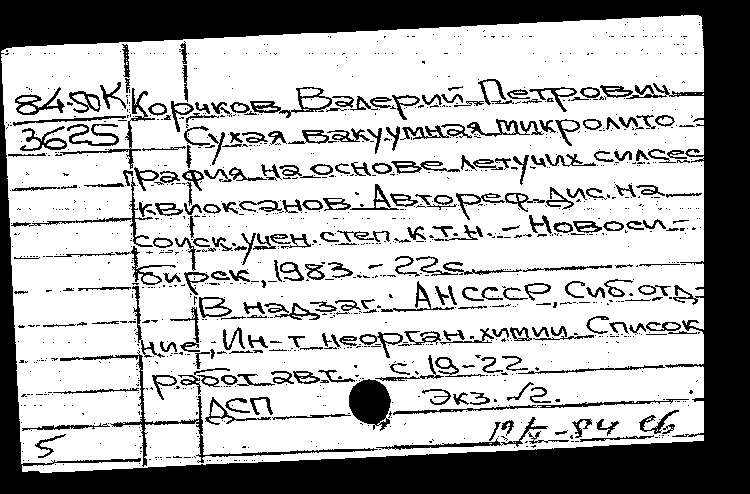 84-50К Корчков, Валерий Петрович
3625 Сухая вакуумная микролито-
графия на основе летучих силсес
квиоксанов: Автореф. дис. на
соиск. учен. степ. к.т.н. - Новоси-
бирск, 1983. - 22с.
В надзаг.: АН СССР, Сиб. отд-
ние, Ин-т неорган. химии. Список
работ авт.: с. 19-22.
ДСП Экз. √2.
5